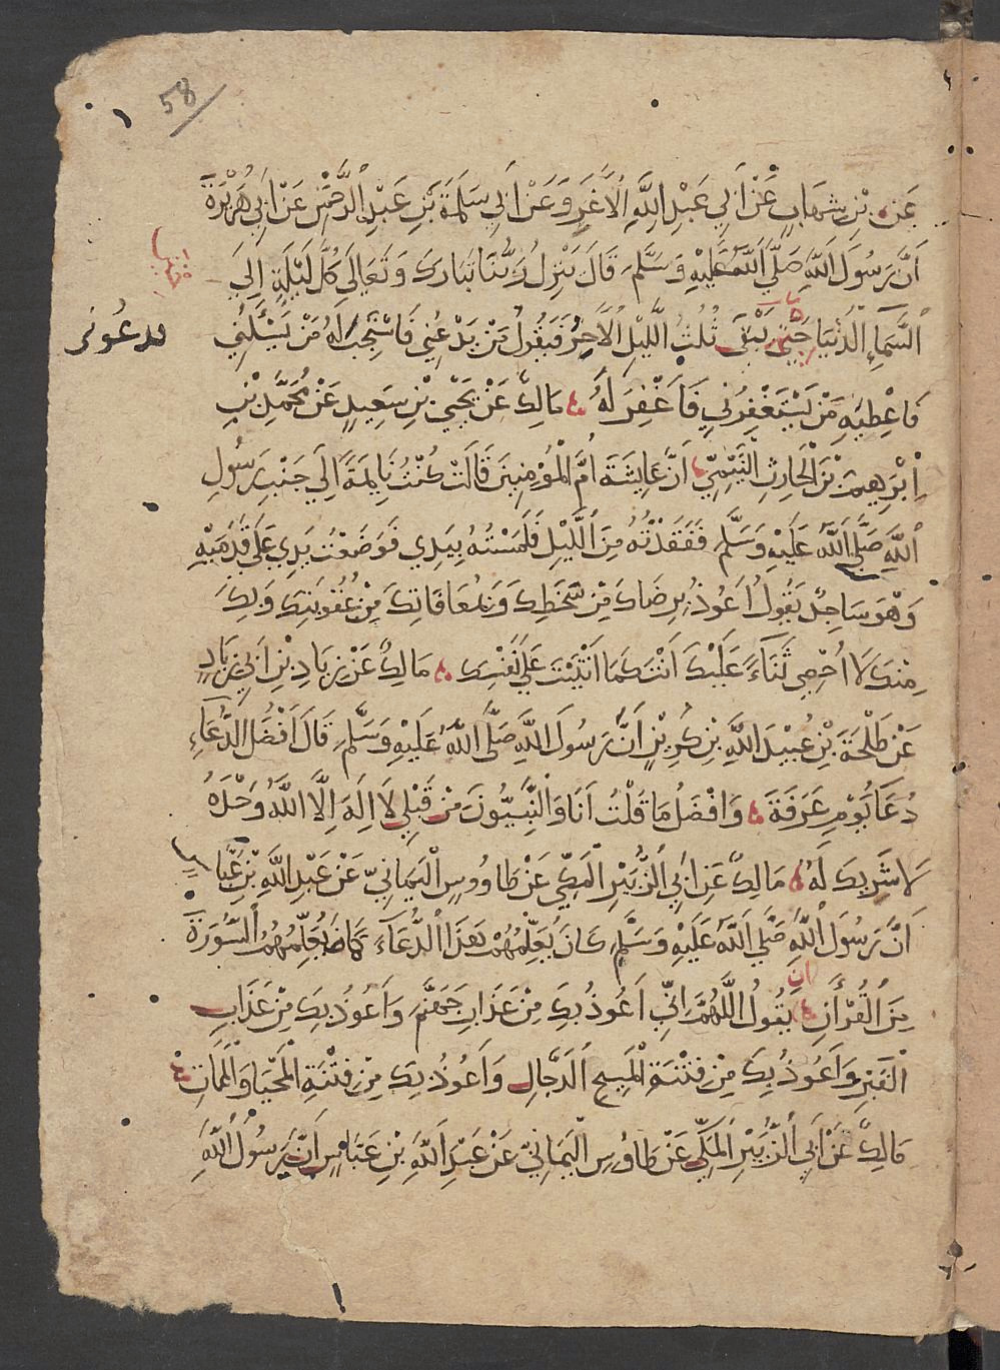 58
عَنِ بْنِ شِهَابٍ عَنْ أَبِي عَبْدِ اللَّهِ الْأَغَرِ وَعَنْ أَبِي سَلَمَةَ بْنِ عَبْدِ الرَّحْمَنِ عَنْ أَبِي هُرَيْرَةَ
أَنَّ رَسُولَ اللَّهِ صَلَّى اللَّهُ عَلَيْهِ وَسَلَّمَ قَالَ يَنْزِلُ رَبُّنَا تَبَارَكَ وَتَعَالَى كُلَّ لَيْلَةٍ إِلَى
السَّمَاءِ الدُّنْيَا حَتَّى يَبْقَى ثُلُثُ اللَّيْلِ الْآخِرُ فَيَقُولُ مَنْ يَدْعُنِي فَاسْتَجِبْ لَهُ مَنْ يَسْئَلُنِي
يدعوني
فَأُعْطِيَهِ مَنْ يَسْتَغْفِرُنِي فَأَغْفِرَ لَهُ مَالِكٌ عَنْ يَحْيَى بْنِ سَعِيدٍ عَنْ مُحَمَّدِ بْنِ
إِبْرَهِيمَ بْنِ الْحَارِثِ التَّيْمِيِّ أَنَّ عَايِشَةَ أُمَّ الْمُؤْمِنِينَ قَالَتْ كُنْتُ نَايِمَةً إِلَى جَنْبِ رَسُولِ
اللَّهِ صَلَّى اللَّهُ عَلَيْهِ وَسَلَّمَ فَفَقَدْتُهُ مِنَ اللَّيْلِ فَلَمَسْتُهُ بِيَدِي فَوَضَعْتُ يَدِي عَلَى قَدَمَيْهِ
وَهْوَ سَاجِدٌ يَقُولُ أَعُوذُ بِرِضَاكَ مِنْ سَخَطِكَ وَبِمُعَافَاتِكَ مِنْ عُقُوبَتِكَ وَبِكَ
مِنْكَ لَا أُحْصِي ثَنَاءً عَلَيْكَ أَنْتَ كَمَا أَثْنَيْتَ عَلَى نَفْسِكَ مَالِكٌ عَنْ زِيَادِ بْنِ أَبِي زِيَادٍ
عَنْ طَلْحَةَ بْنِ عُبَيْدِ اللَّهِ بْنِ كَرِيزٍ أَنَّ رَسُولَ اللَّهِ صَلَّى اللَّهُ عَلَيْهِ وَسَلَّمَ قَالَ أَفْضَلُ الدُّعَاءِ
دُعَا يَوْمِ عَرَفَةَ وَأَفْضَلُ مَا قُلْتُ أَنَا وَالنَّبِيُّونَ مِنْ قَبْلِي لَا إِلَهَ إِلَّا اللَّهُ وَحْدَهُ
لَا شَرِيكَ لَهُ مَالِكٌ عَنْ أَبِي الزُّبَيْرِ الْمَكِّي عَنْ طَاوُوسٍ الْيَمَانِيِّ عَنْ عَبْدِ اللَّهِ بْنِ عَبَّاسٍ
أَنَّ رَسُولَ اللَّهِ صَلَّى اللَّهُ عَلَيْهِ وَسَلَّمَ كَانَ يُعَلِّمُهُمْ هَذَا الدُّعَاءَ كَمَا يُعَلِّمُهُمُ السُّورَةَ
مِنَ الْقُرْآنِ يَقُولُ اللَّهُمَّ إِنِّي أَعُوذُ بِكَ مِنْ عَذَابِ جَهَنَّمَ وَأَعُوذُ بِكَ مِنْ عَذَابِ
الْقَبْرِ وَأَعُوذُ بِكَ مِنْ فِتْنَةِ الْمَسِيحِ الدَّجَّالِ وَأَعُوذُ بِكَ مِنْ فِتْنَةِ الْمَحْيَا وَالْمَمَاتِ
مَالِكٌ عَنْ أَبِي الزُّبَيْرِ الْمَكِّي عَنْ طَاوُسِ الْيَمَانِيِّ عَنْ عَبْدِ اللَّهِ بْنِ عَبَّاسٍ أَنَّ رَسُولَ اللَّهِ